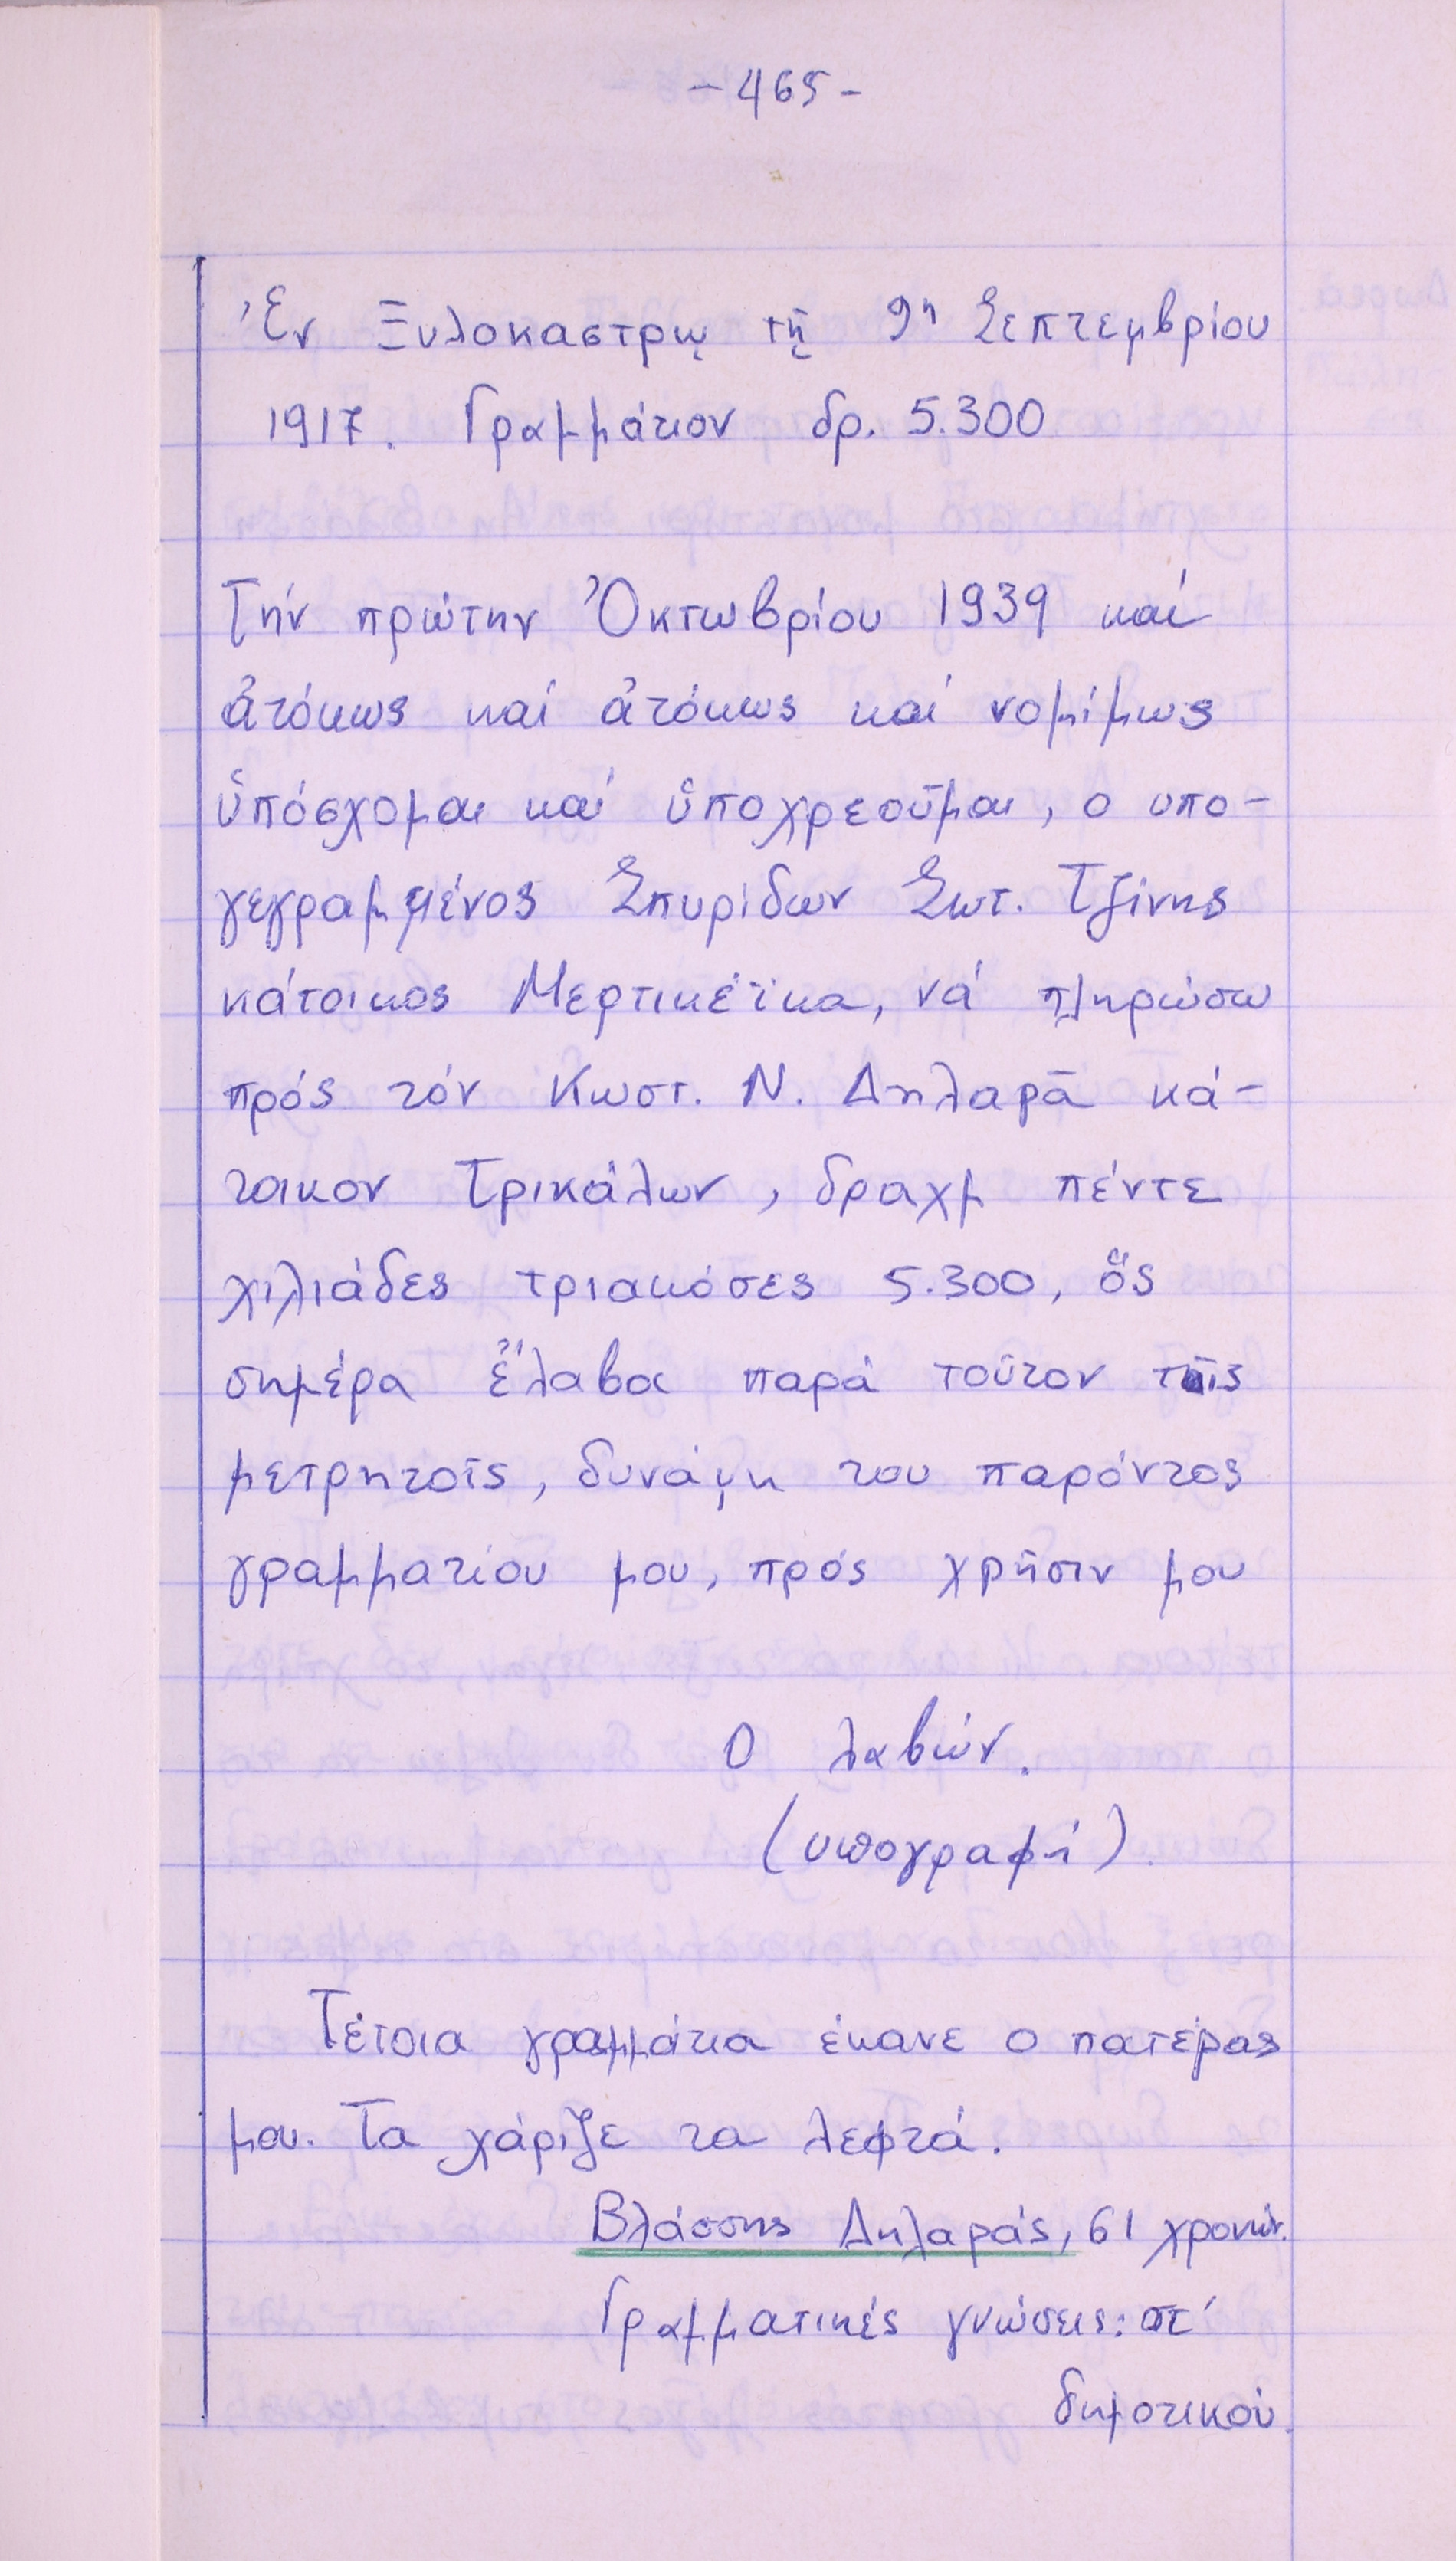 - 465 -
Ἐν Ξυλοκαστρῳ τῇ 9η Σεπτεμβρίου
1917. Γραμμάτιον δρ. 5.300
Τήν πρώτην Ὀκτωβρίου 1939 καί
ἀτόκως καί ἀτόκως καί νομίμως
ὑπόσχομαι καί ὑποχρεοῦμαι, ο υπο-
γεγραμμένος Σπυρίδων Σωτ. Τζίνης
κάτοικος Μερτικέϊκα, νά πληρώσω
πρός τόν Κωστ. Ν. Δηλαρᾶ κά-
τοικον Τρικάλων, δραχμ πέντε
χιλιάδες τριακόσες 5.300, ὅς
σημέρα ἔλαβα παρά τοῦτον τοῖς
μετρητοῖς, δυνάμη του παρόντος
γραμματίου μου, πρός χρῆσιν μου
Ο λαβών.
(υπογραφή)
Τέτοια γραμμάτια έκανε ο πατέρας
μου. Τα χάριζε τα λεφτά.
Βλάσσης Δηλαράς, 61 χρονών.
Γραμματικές γνώσεις: στ΄
δημοτικού.